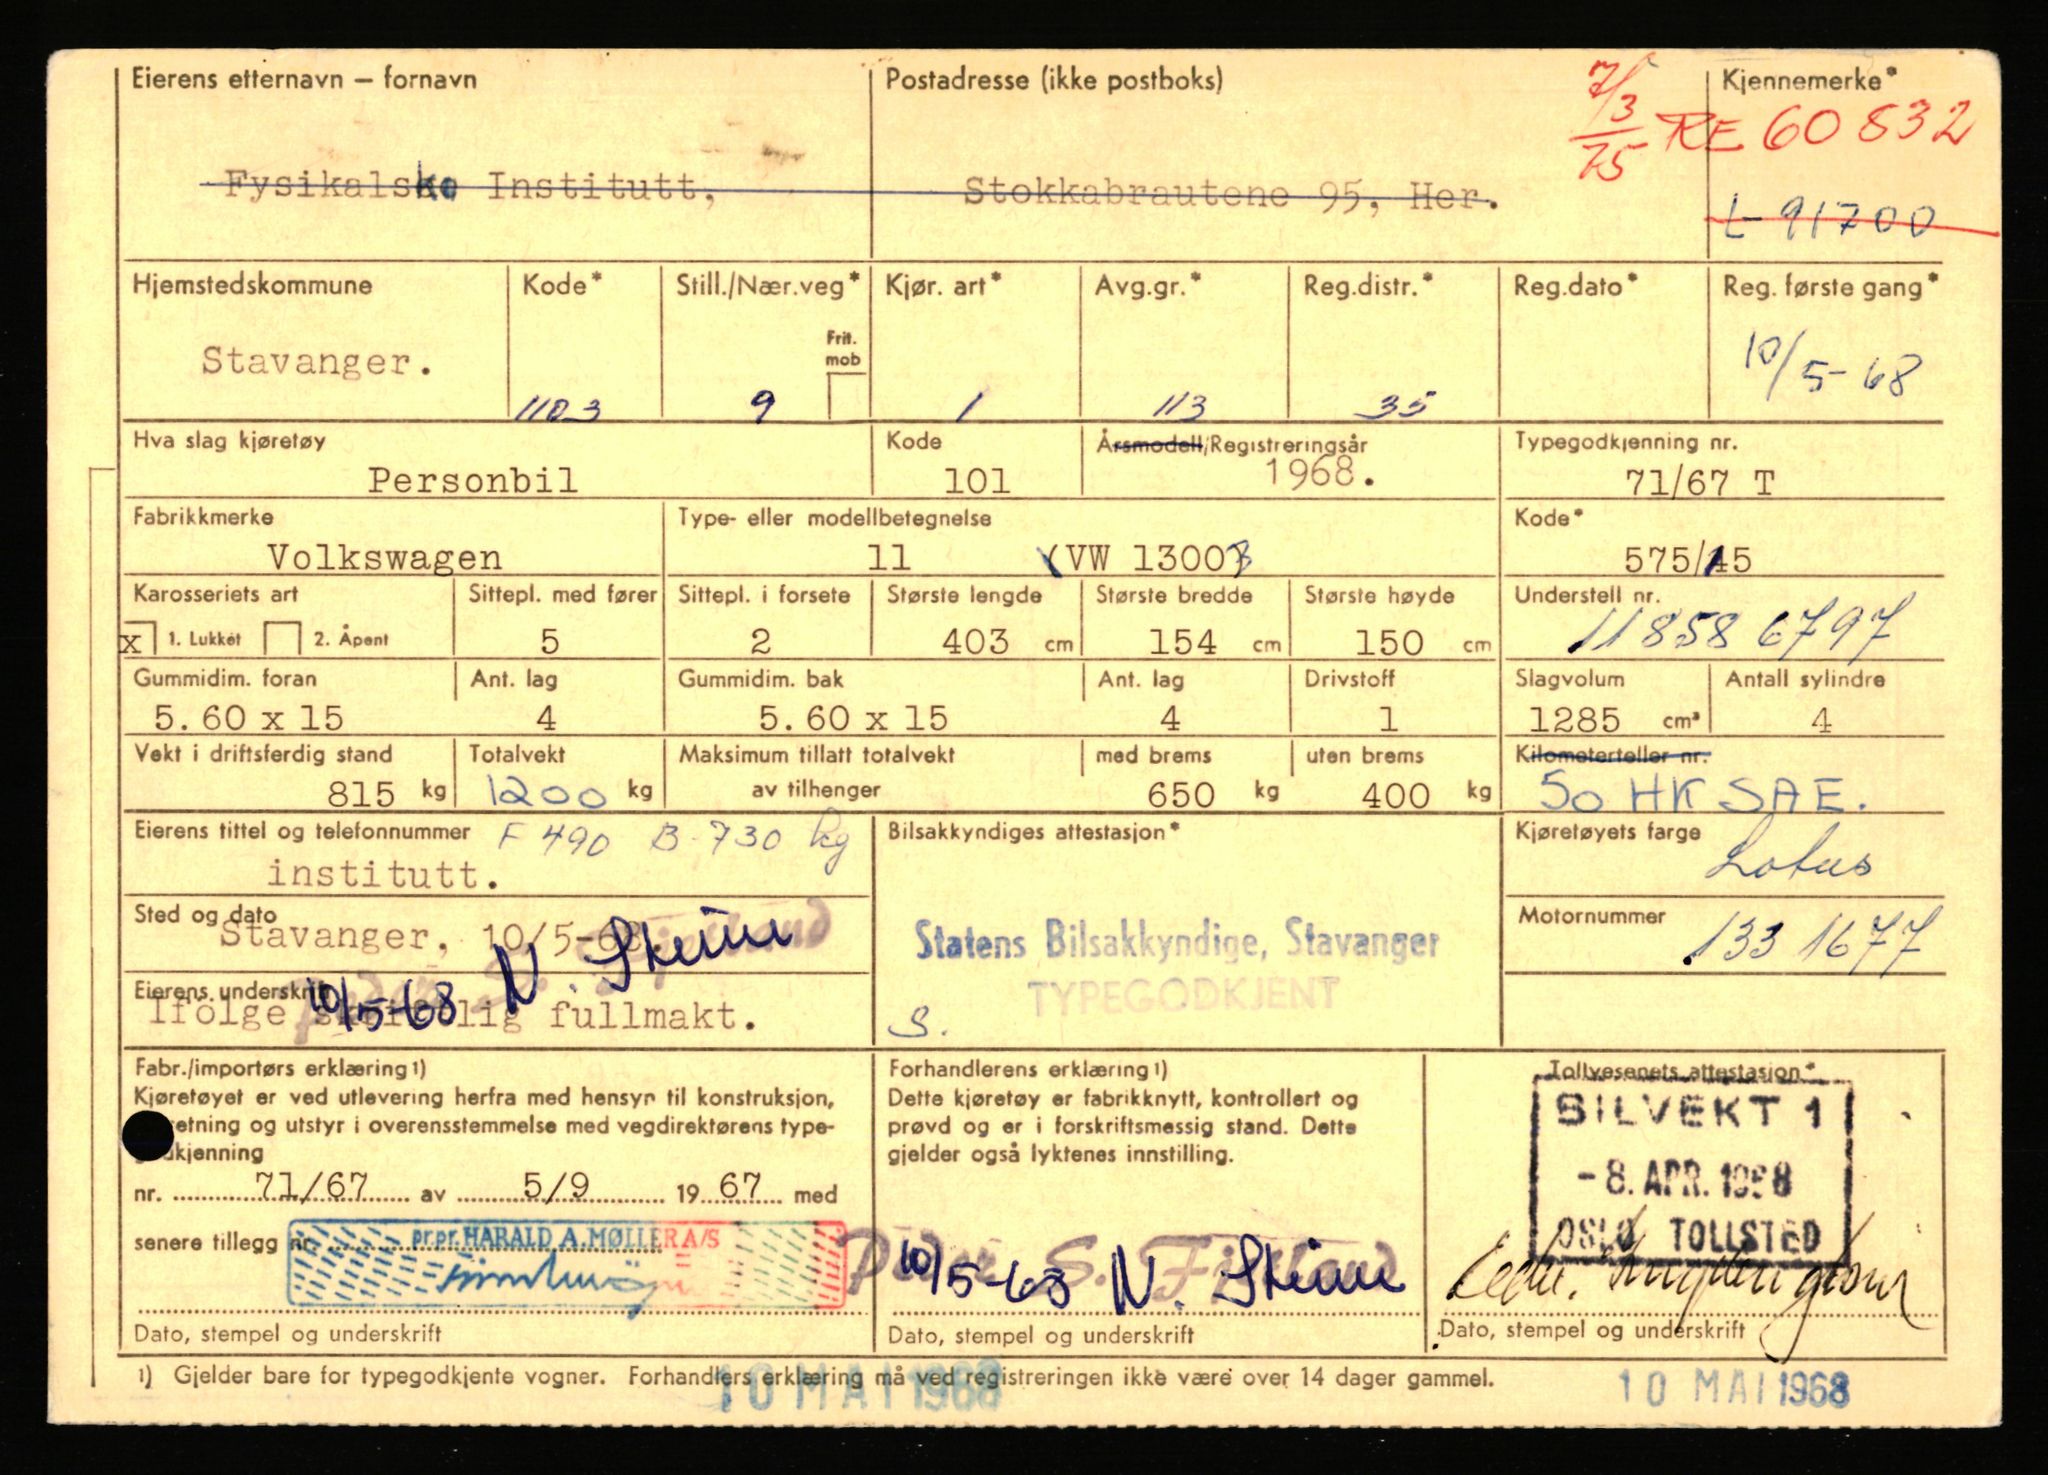 Eierens etternavn – fornavn Postadresse (ikke postboks) Kjennemerke*
7/3 75 RE 60832
Fysikalske Institutt, Stokkabrautene 95, Her.
L-91700
Hjemstedskommune Kode* Still./Nær.veg* Kjør. art* Avg.gr.* Reg.distr.* Reg.dato* Reg. første gang*
Frit. mob
Stavanger. 1103 9 1 113 35 10/5-68
Hva slag kjøretøy Kode Årsmodell/Registreringsår Typegodkjenning nr.
Personbil 101 1968. 71/67 T
Fabrikkmerke Type- eller modellbetegnelse Kode*
Volkswagen 11 (VW 1300) 575/15
Karosseriets art Sittepl. med fører Sittepl. i forsete Største lengde Største bredde Største høyde Understell nr.
x 1. Lukket 2. Åpent 5 2 403 cm 154 cm 150 cm 118586797
Gummidim. foran Ant. lag Gummidim. bak Ant. lag Drivstoff Slagvolum Antall sylindre
5.60 x 15 4 5.60 x 15 4 1 1285 cm³ 4
Vekt i driftsferdig stand Totalvekt Maksimum tillatt totalvekt med brems uten brems Kilometerteller nr.
815 kg 1200 kg av tilhenger 650 kg 400 kg 50 HK SAE.
Eierens tittel og telefonnummer F 490 B-730 kg Bilsakkyndiges attestasjon* Kjøretøyets farge
institutt. Lotus
Sted og dato Motornummer
Stavanger, 10/5-68. N. Skeime Statens Bilsakkyndige, Stavanger 1331677
Eierens underskrift TYPEGODKJENT
Ifølge skriftlig fullmakt. 10/5-68 S.
Fabr./importørs erklæring 1) Forhandlerens erklæring 1) Tollvesenets attestasjon*
Kjøretøyet er ved utlevering herfra med hensyn til konstruksjon, Dette kjøretøy er fabrikknytt, kontrollert og BILVEKT 1
etning og utstyr i overensstemmelse med vegdirektørens type- prøvd og er i forskriftsmessig stand. Dette
dkjenning gjelder også lyktenes innstilling. -8. APR. 1968
nr. 71/67 av 5/9 1967 med
senere tillegg nr. pr.pr. HARALD A. MØLLER A/S OSLO TOLLSTED
10/5-68 N. Skeime
Dato, stempel og underskrift Dato, stempel og underskrift Dato, stempel og underskrift
1) Gjelder bare for typegodkjente vogner. Forhandlers erklæring må ved registreringen ikke være over 14 dager gammel.
10 MAI 1968 10 MAI 1968